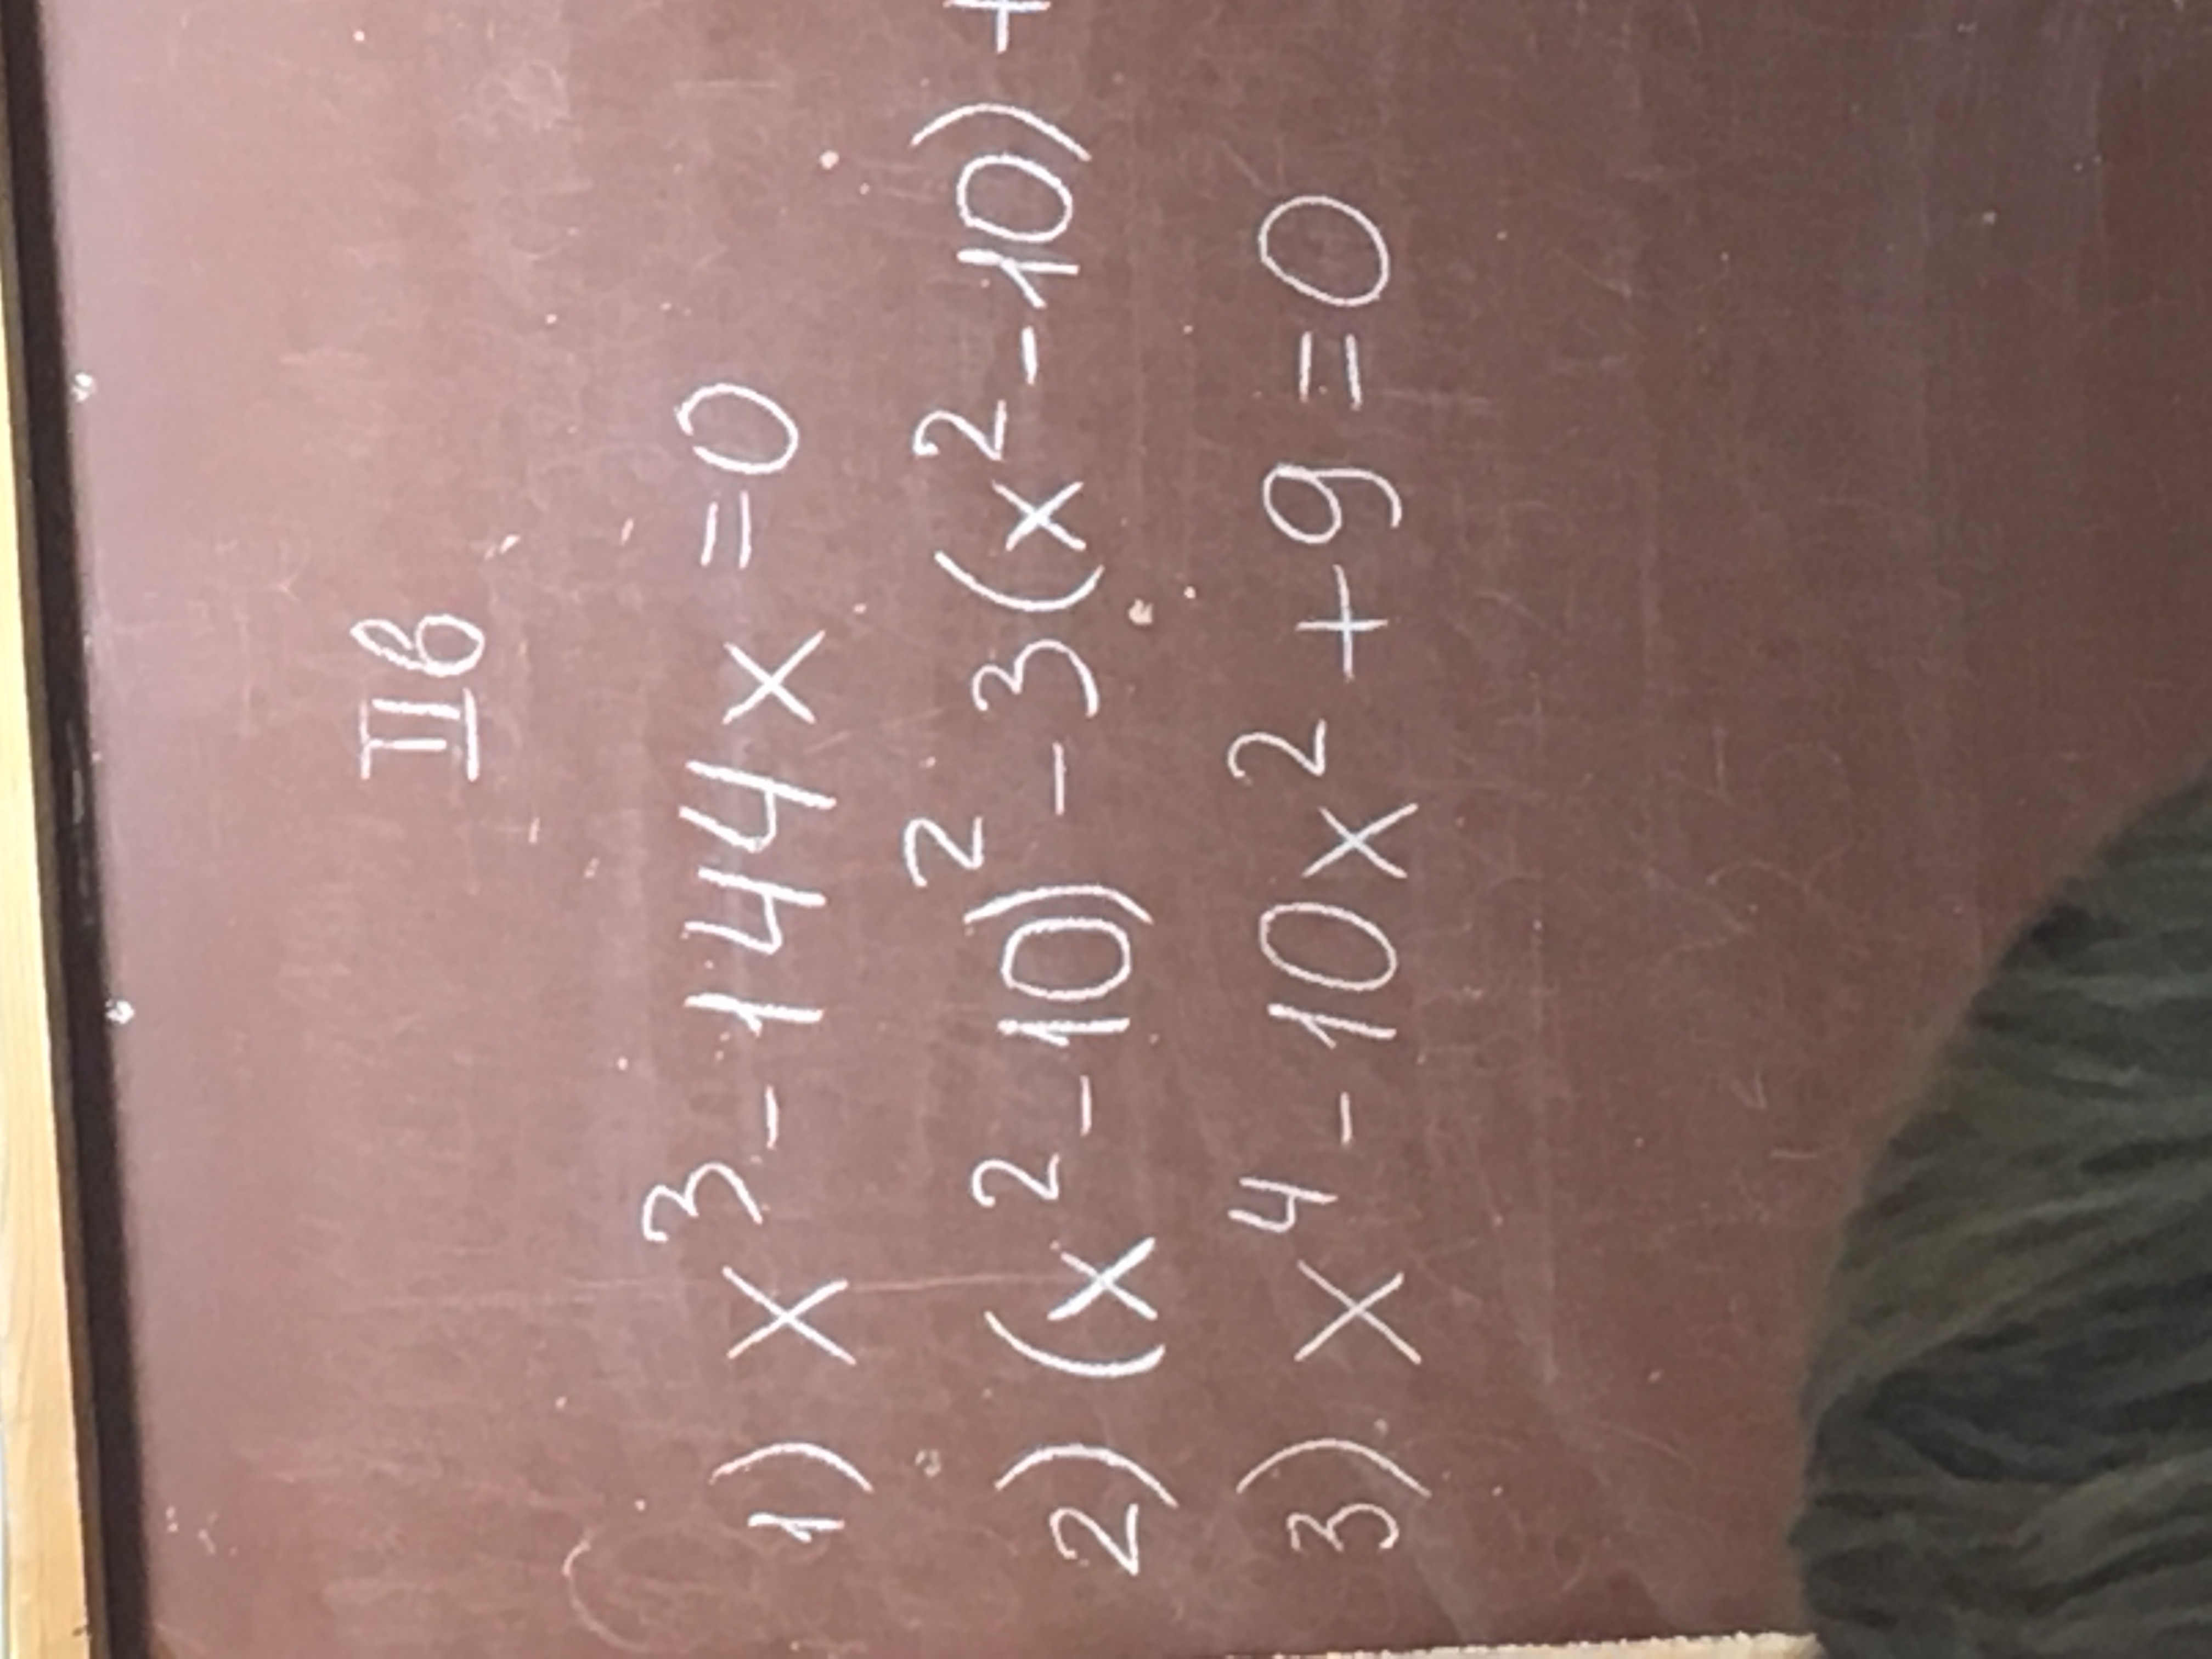 IIв
1) x³ - 144x = 0
2) (x² - 10)² - 3(x² - 10) +
3) x⁴ - 10x² + 9 = 0